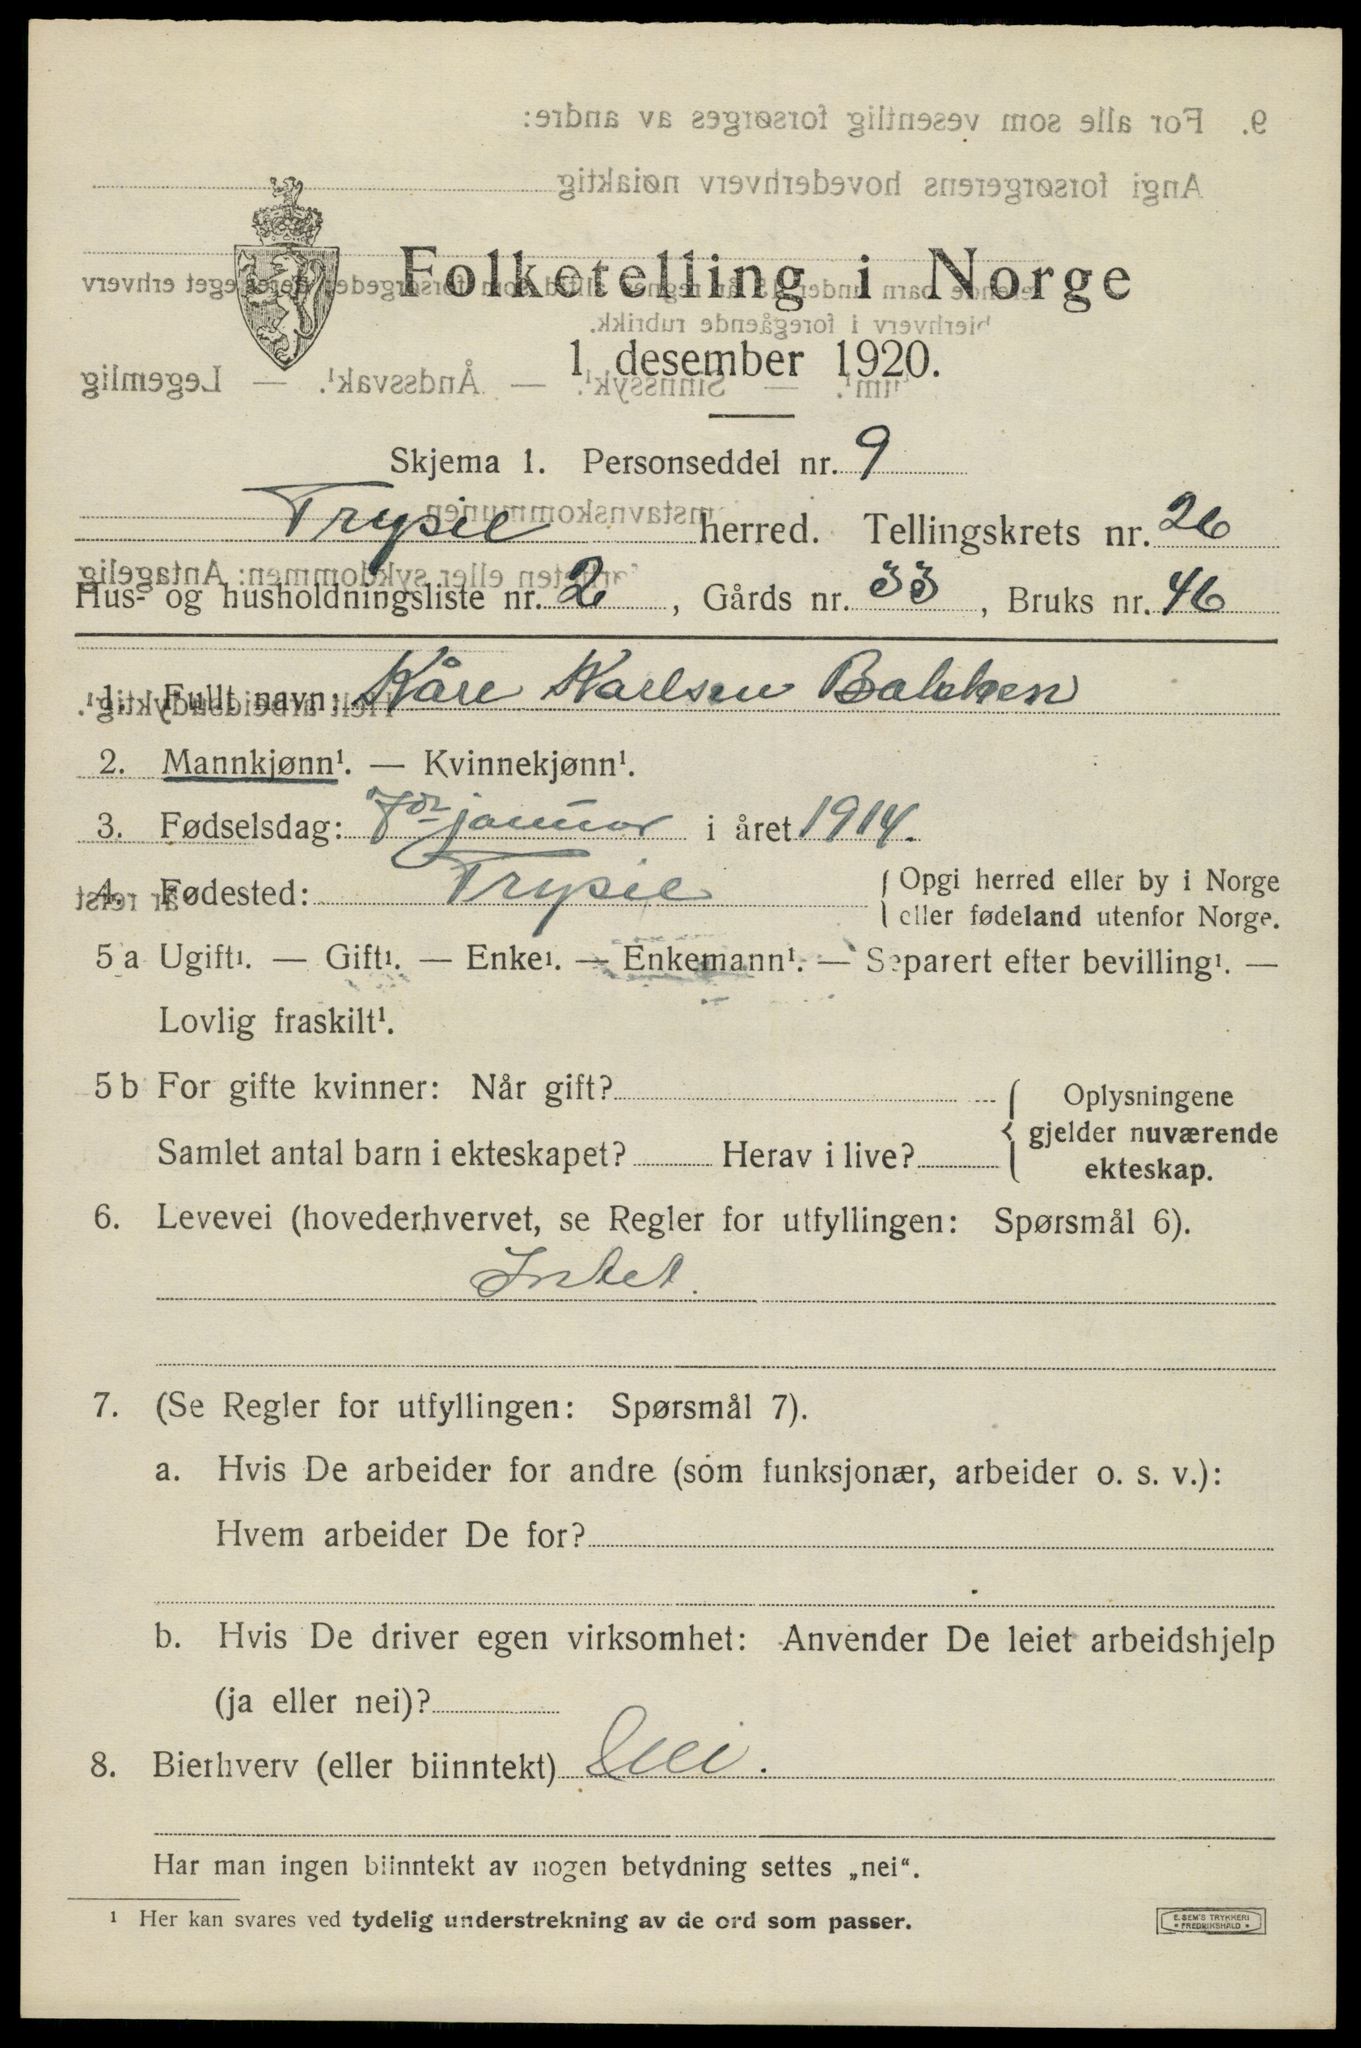 Folketelling i Norge
1. desember 1920.
Skjema 1. Personseddel nr. 9
Trysil herred. Tellingskrets nr. 26
Hus- og husholdningsliste nr. 2, Gårds nr. 33, Bruks nr. 46
1. Fullt navn: Kåre Karlsen Bakken
2. Mannkjønn¹. — Kvinnekjønn¹.
3. Fødselsdag: 7de januar i året 1914.
4. Fødested: Trysil { Opgi herred eller by i Norge
eller fødeland utenfor Norge.
5 a Ugift¹. — Gift¹. — Enke¹. — Enkemann¹. — Separert efter bevilling¹. —
Lovlig fraskilt¹.
5 b For gifte kvinner: Når gift? { Oplysningene
gjelder nuværende
Samlet antal barn i ekteskapet? Herav i live?
ekteskap.
6. Levevei (hovederhvervet, se Regler for utfyllingen: Spørsmål 6).
Intet.
7. (Se Regler for utfyllingen: Spørsmål 7).
a. Hvis De arbeider for andre (som funksjonær, arbeider o. s. v.):
Hvem arbeider De for?
b. Hvis De driver egen virksomhet: Anvender De leiet arbeidshjelp
(ja eller nei)?
8. Bierhverv (eller biinntekt) Nei.
Har man ingen biinntekt av nogen betydning settes „nei“.
¹ Her kan svares ved tydelig understrekning av de ord som passer.
E. SEM'S TRYKKERI
• FREDRIKSHALD •